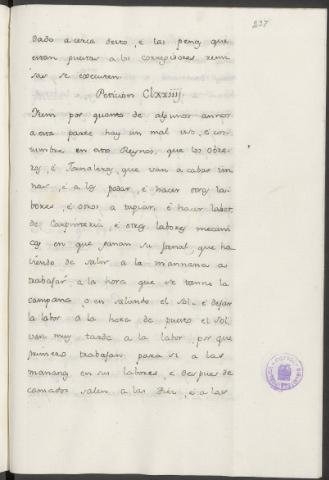 237
dado acerca desto, e las penas que
estan puestas a los corregidores remi
sas se executen.
Peticion Clxxiiij
Item por quanto de algunos annos
a esta parte hay un mal uso, e cos-
tumbre en estos Reynos, que los obre-
ros, e Jornaleros, que van a cabar vin
nas, e a las podar, e hacer otras la-
bores, e otros a tapiar, e hacer labor
de Carpinteria, e otras labores mecani
cas en que ganan su jornal, que ha
viendo de salir a la mannana a
trabajar a la hora que se tanne la
campana, o en saliendo el sol, e dejar
la labor a la hora de puesto el sol,
van muy tarde a la labor, porque
primero trabajan para si a las
mananas en sus labores, e despues de
cansados salen a las diez, e a las